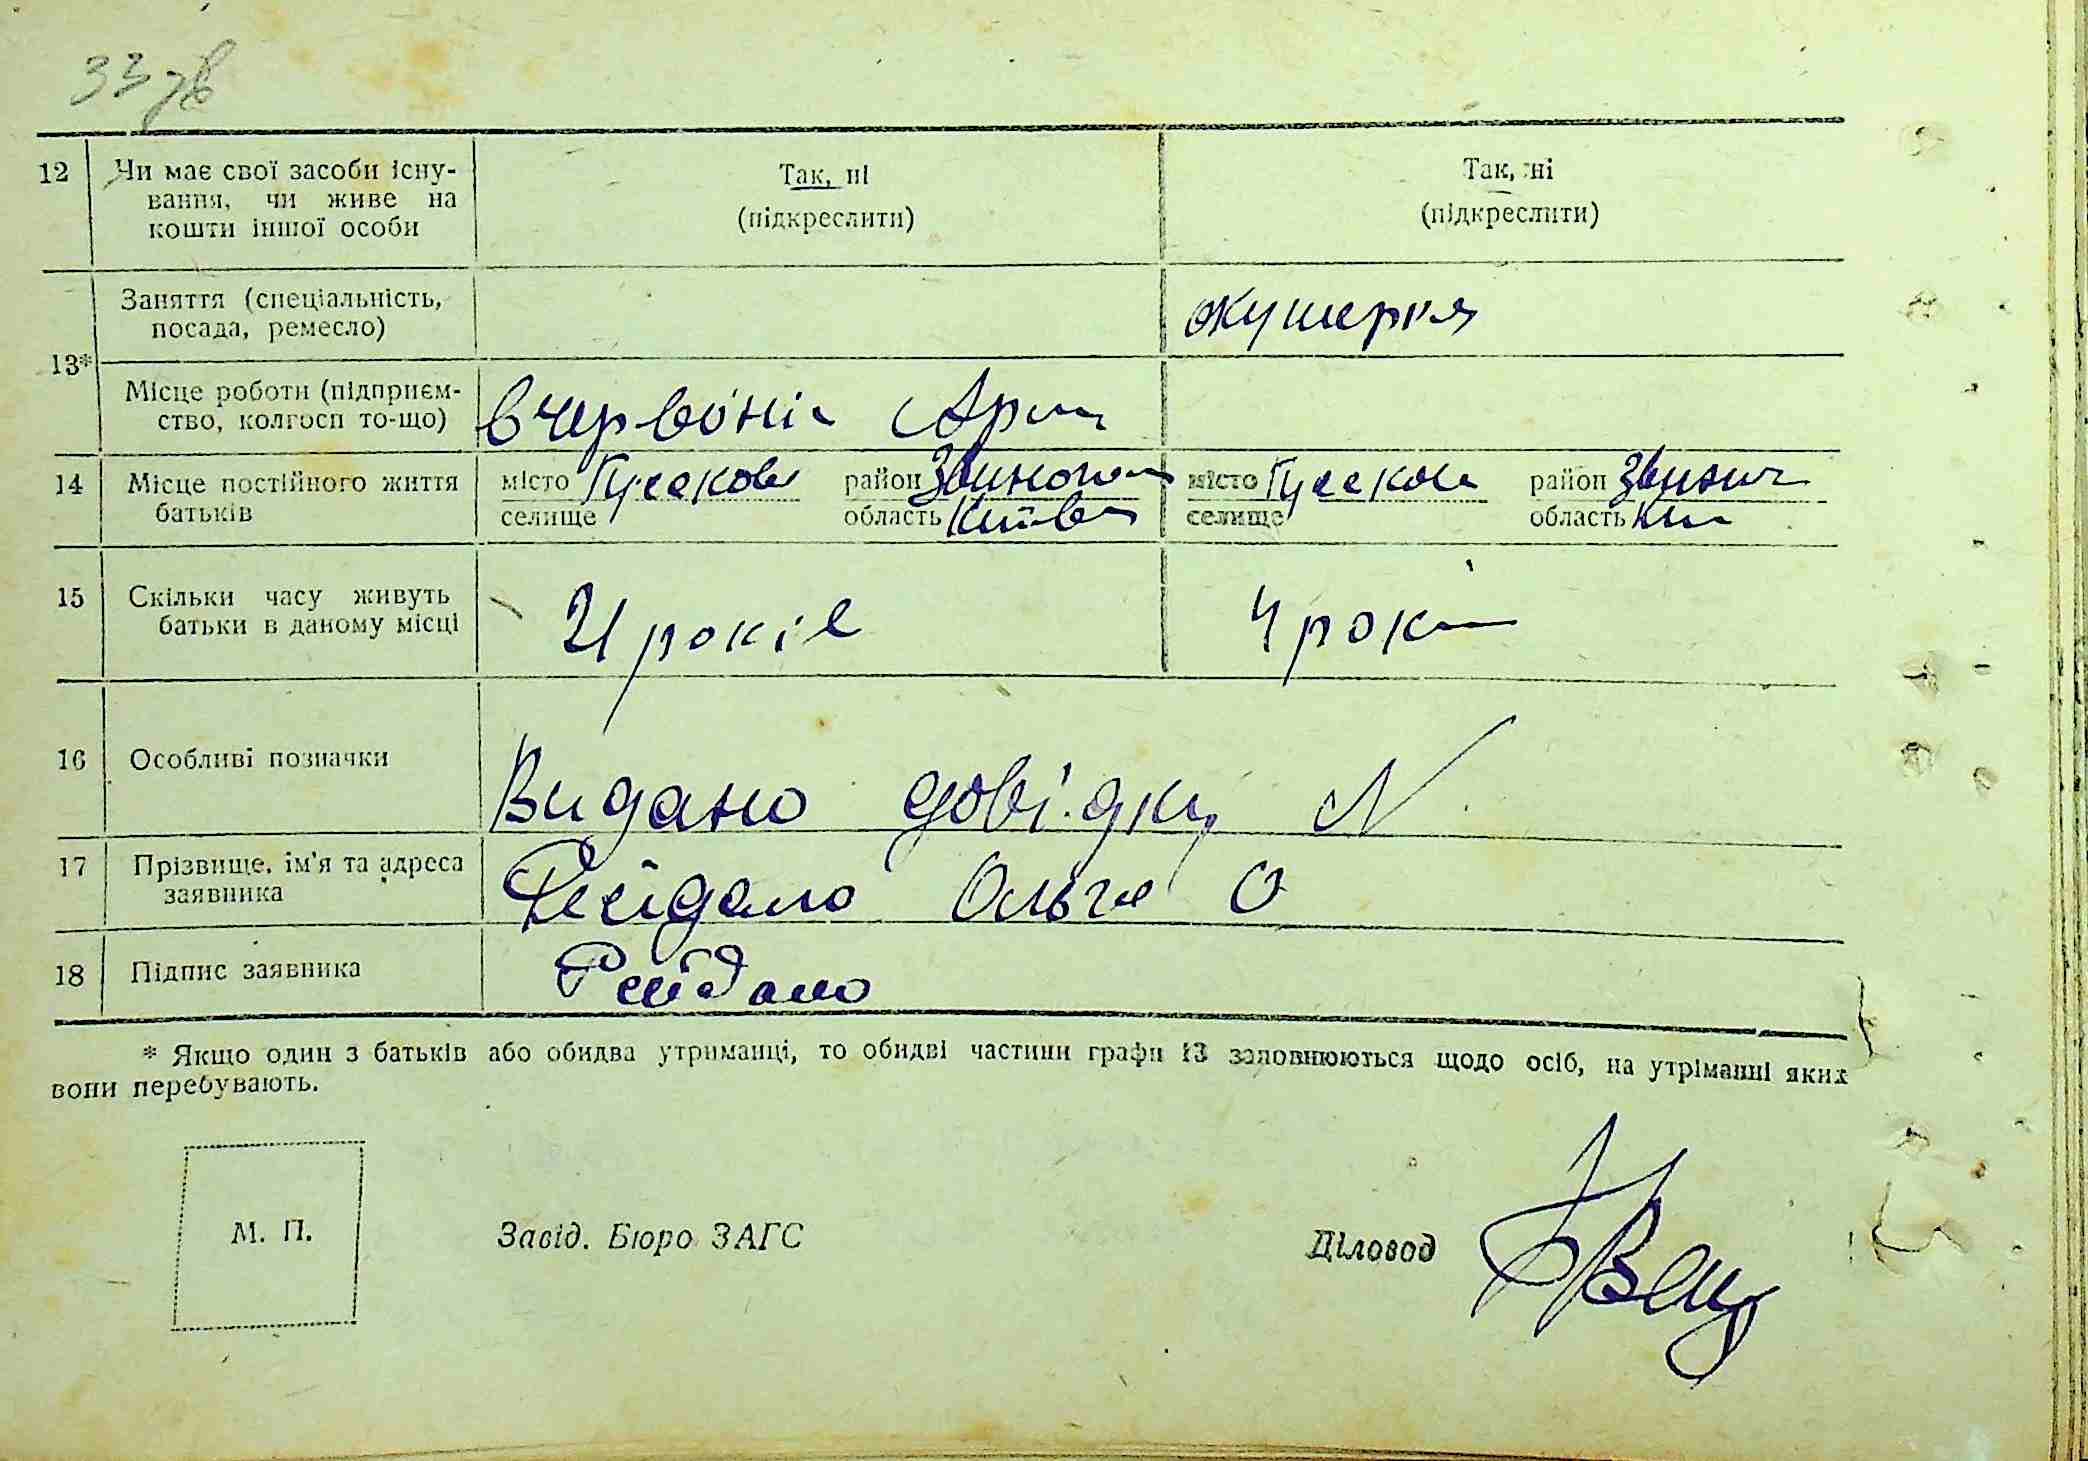 33 зв
12 Чи має свої засоби існу-
вання, чи живе на
кошти іншої особи
Так, ні
(підкреслити)
Так, ні
(підкреслити)
13*
Заняття (спеціальність,
посада, ремесло)
акушерка
Місце роботи (підприєм-
ство, колгосп то-що)
в червоній Арм
14 Місце постійного життя
батьків
місто Гусаково район Звиного
селище область Київс
місто Гусаков район Звинич
селище область Ки
15 Скільки часу живуть
батьки в даному місці
21 років
4 рокі
16 Особливі позначки
Видано довідку N
17 Прізвище, ім'я та адреса
заявника
Рейдало Ольга О
18 Підпис заявника
Рейдало
* Якщо один з батьків або обидва утриманці, то обидві частини графи 13 заповнюються щодо осіб, на утріманні яких
вони перебувають.
М. П.
Завід. Бюро ЗАГС
Діловод